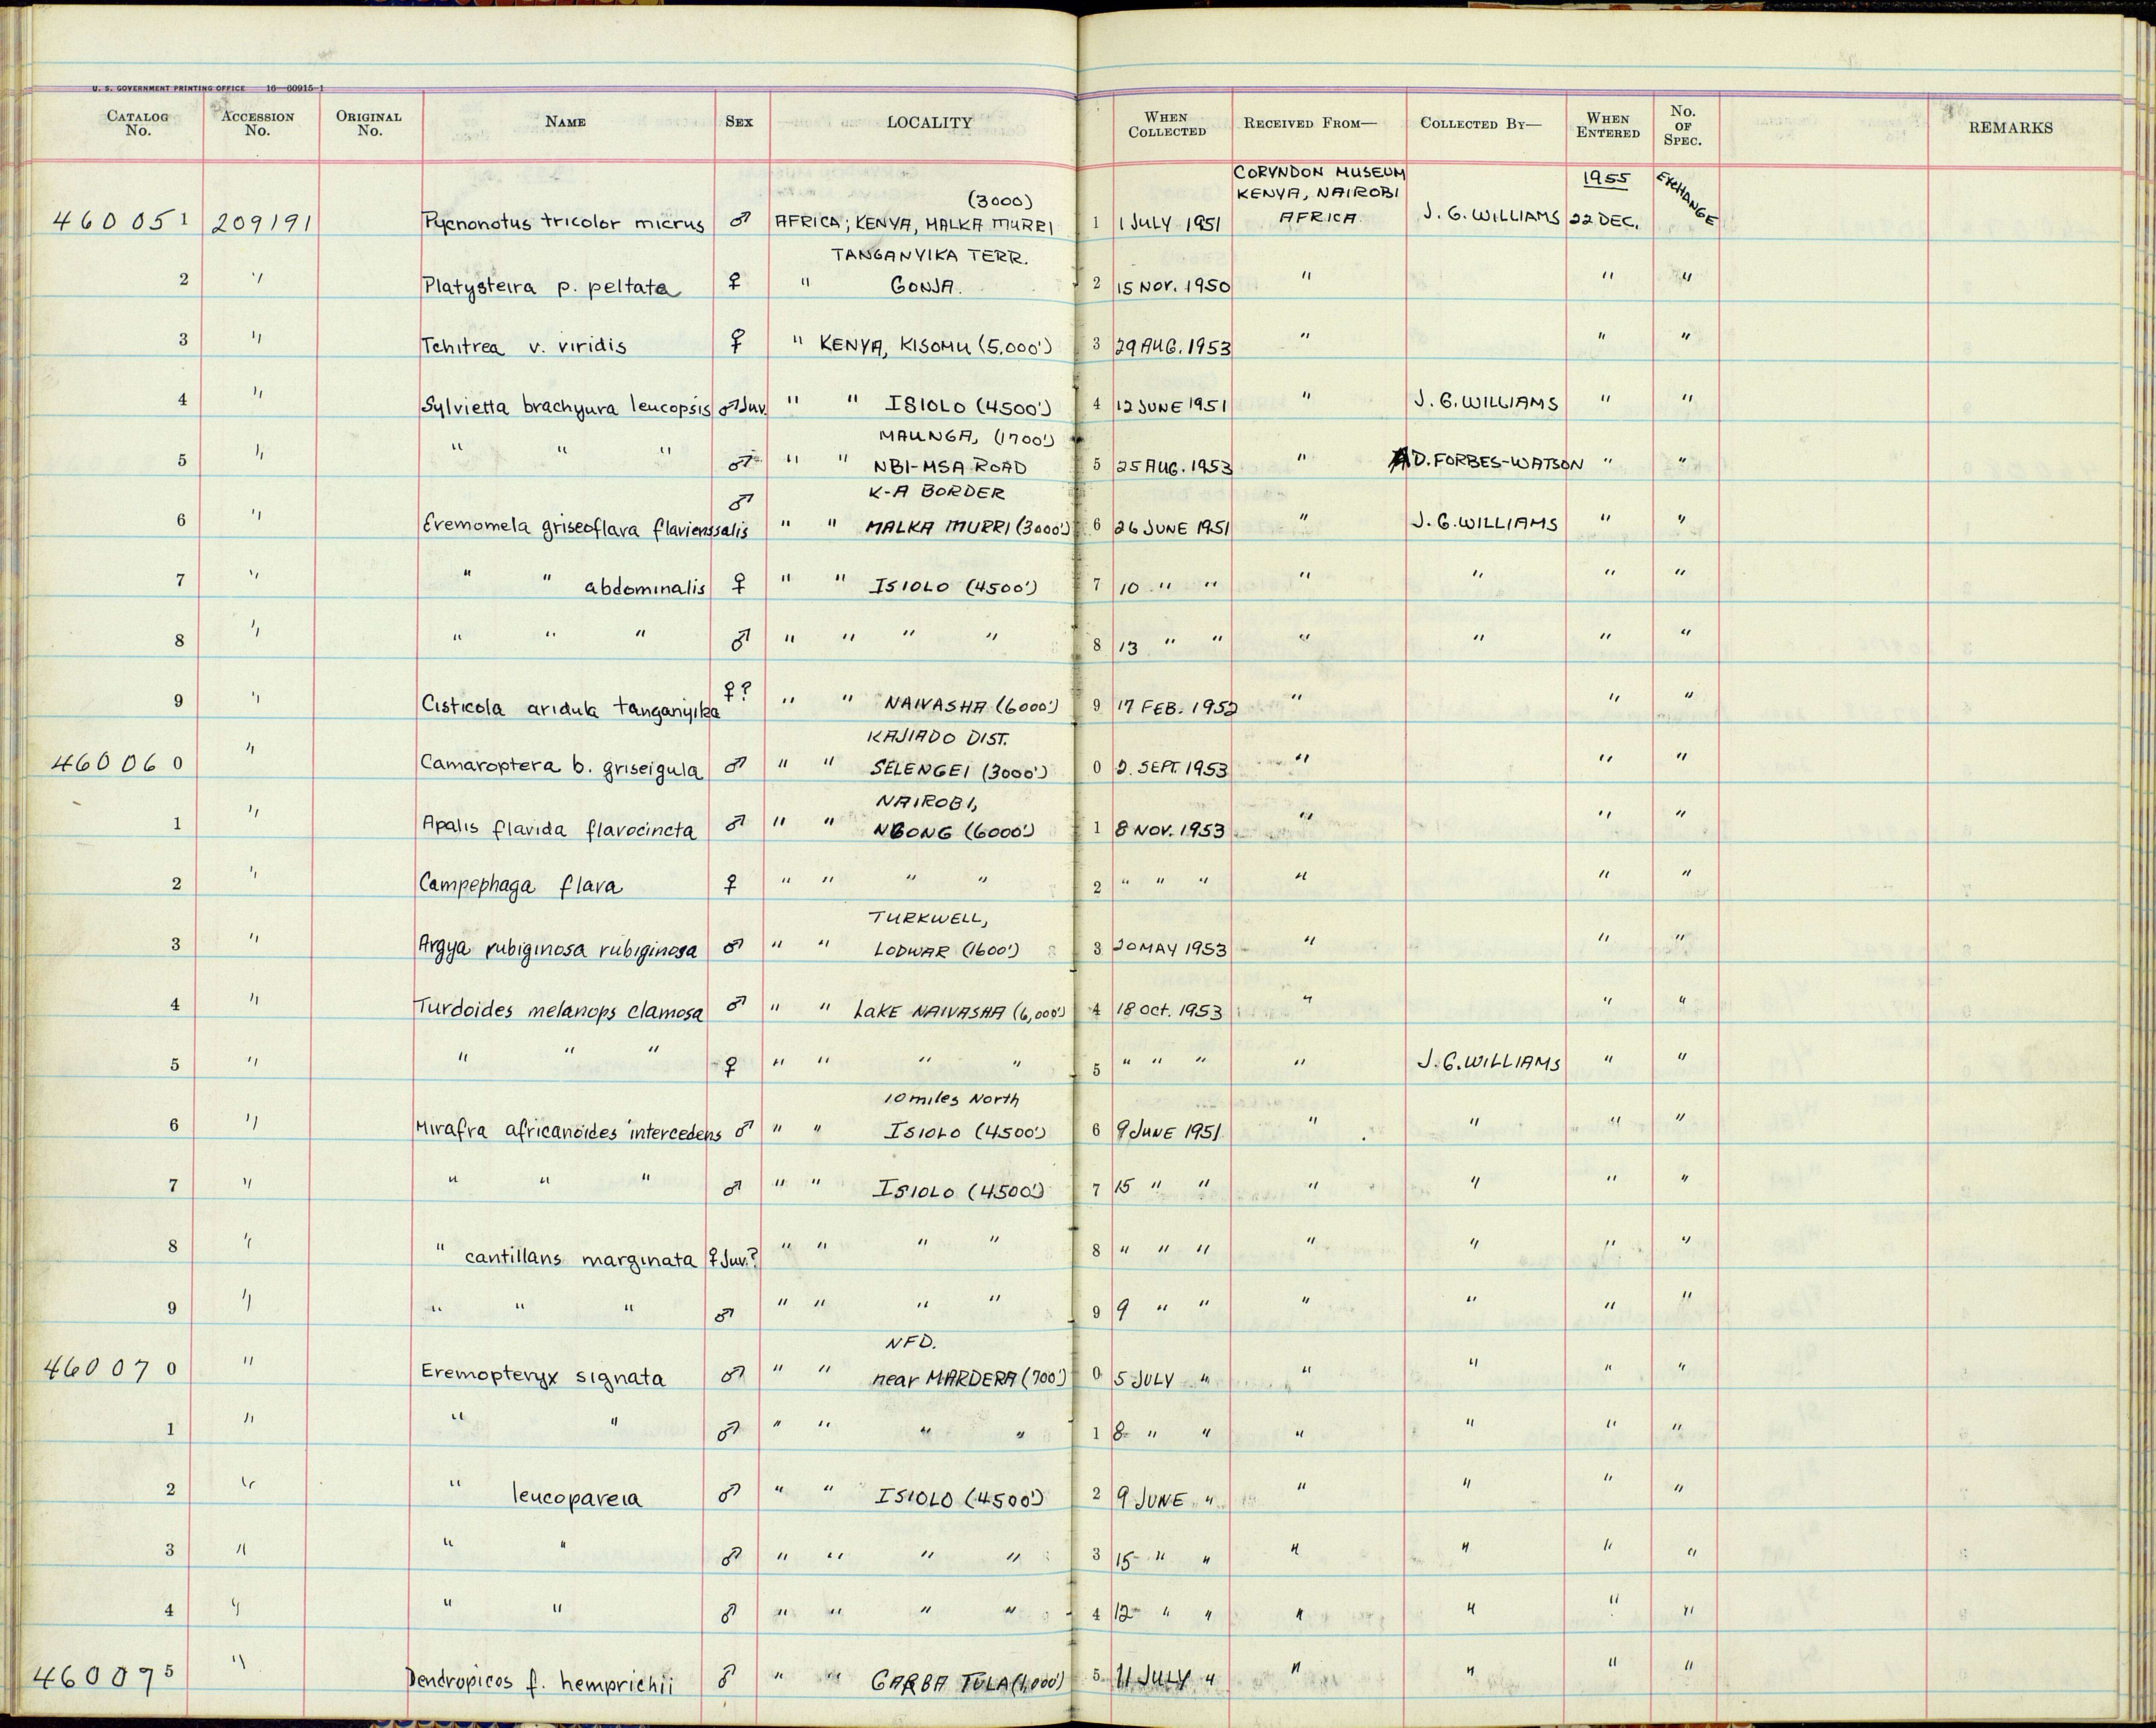 U. S. GOVERNMENT PRINTING OFFICE 16—60915-1
CATALOG No. ACCESSION No. ORIGINAL No. NAME SEX LOCALITY WHEN COLLECTED RECEIVED FROM— COLLECTED BY— WHEN ENTERED No. OF SPEC. REMARKS
(3000) CORYNDON MUSEUM KENYA, NAIROBI 1955
460051 209191 Pycnonotus tricolor micrus ♂ AFRICA; KENYA, MALKA MURRI 1 1 JULY 1951 AFRICA J. G. WILLIAMS 22 DEC. EXCHANGE
TANGANYIKA TERR.
2 " Platysteira p. peltata ♀ " GONJA. 2 15 NOV. 1950 " " "
3 " Tchitrea v. viridis ♀ " KENYA, KISOMU (5,000') 3 29 AUG. 1953 " " "
4 " Sylvietta brachyura leucopsis ♂ Juv. " " ISIOLO (4500') 4 12 JUNE 1951 " J. G. WILLIAMS " "
MAUNGA, (1700')
5 " " " " ♂ " " NBI-MSA ROAD 5 25 AUG. 1953 " AD. FORBES-WATSON " "
K-A BORDER
6 " Eremomela griseoflava flavienssalis ♂ " " MALKA MURRI (3000') 6 26 JUNE 1951 " J. G. WILLIAMS " "
7 " " " abdominalis ♀ " " ISIOLO (4500') 7 10 " " " " " "
8 " " " " ♂ " " " " 8 13 " " " " " "
9 " Cisticola aridula tanganyika ♀? " " NAIVASHA (6000') 9 17 FEB. 1952 " " "
KAJIADO DIST.
460060 " Camaroptera b. griseigula ♂ " " SELENGEI (3000') 0 2. SEPT. 1953 " " "
NAIROBI,
1 " Apalis flavida flavocincta ♂ " " NGONG (6000') 1 8 NOV. 1953 " " "
2 " Campephaga flava ♀ " " " " 2 " " " " " "
TURKWELL,
3 " Argya rubiginosa rubiginosa ♂ " " LODWAR (1600') 3 20 MAY 1953 " " "
4 " Turdoides melanops clamosa ♂ " " LAKE NAIVASHA (6,000') 4 18 Oct. 1953 " " "
5 " " " " ♀ " " " " 5 " " " " J. G. WILLIAMS " "
10 miles North
6 " Mirafra africanoides intercedens ♂ " " ISIOLO (4500') 6 9 JUNE 1951 " " " "
7 " " " " ♂ " " ISIOLO (4500') 7 15 " " " " " "
8 " " cantillans marginata ♀ Juv.? " " " " 8 " " " " " " "
9 " " " " ♂ " " " " 9 9 " " " " " "
NFD.
460070 " Eremopteryx signata ♂ " " near MARDERA (700') 0 5 JULY " " " " "
1 " " " ♂ " " " " 1 8 " " " " " "
2 " " leucopareia ♂ " " ISIOLO (4500') 2 9 JUNE " " " " "
3 " " " ♂ " " " " 3 15 " " " " " "
4 " " " ♂ " " " " 4 12 " " " " " "
460075 " Dendropicos f. hemprichii ♂ " " GARBA TULA (1,000') 5 11 JULY " " " " "